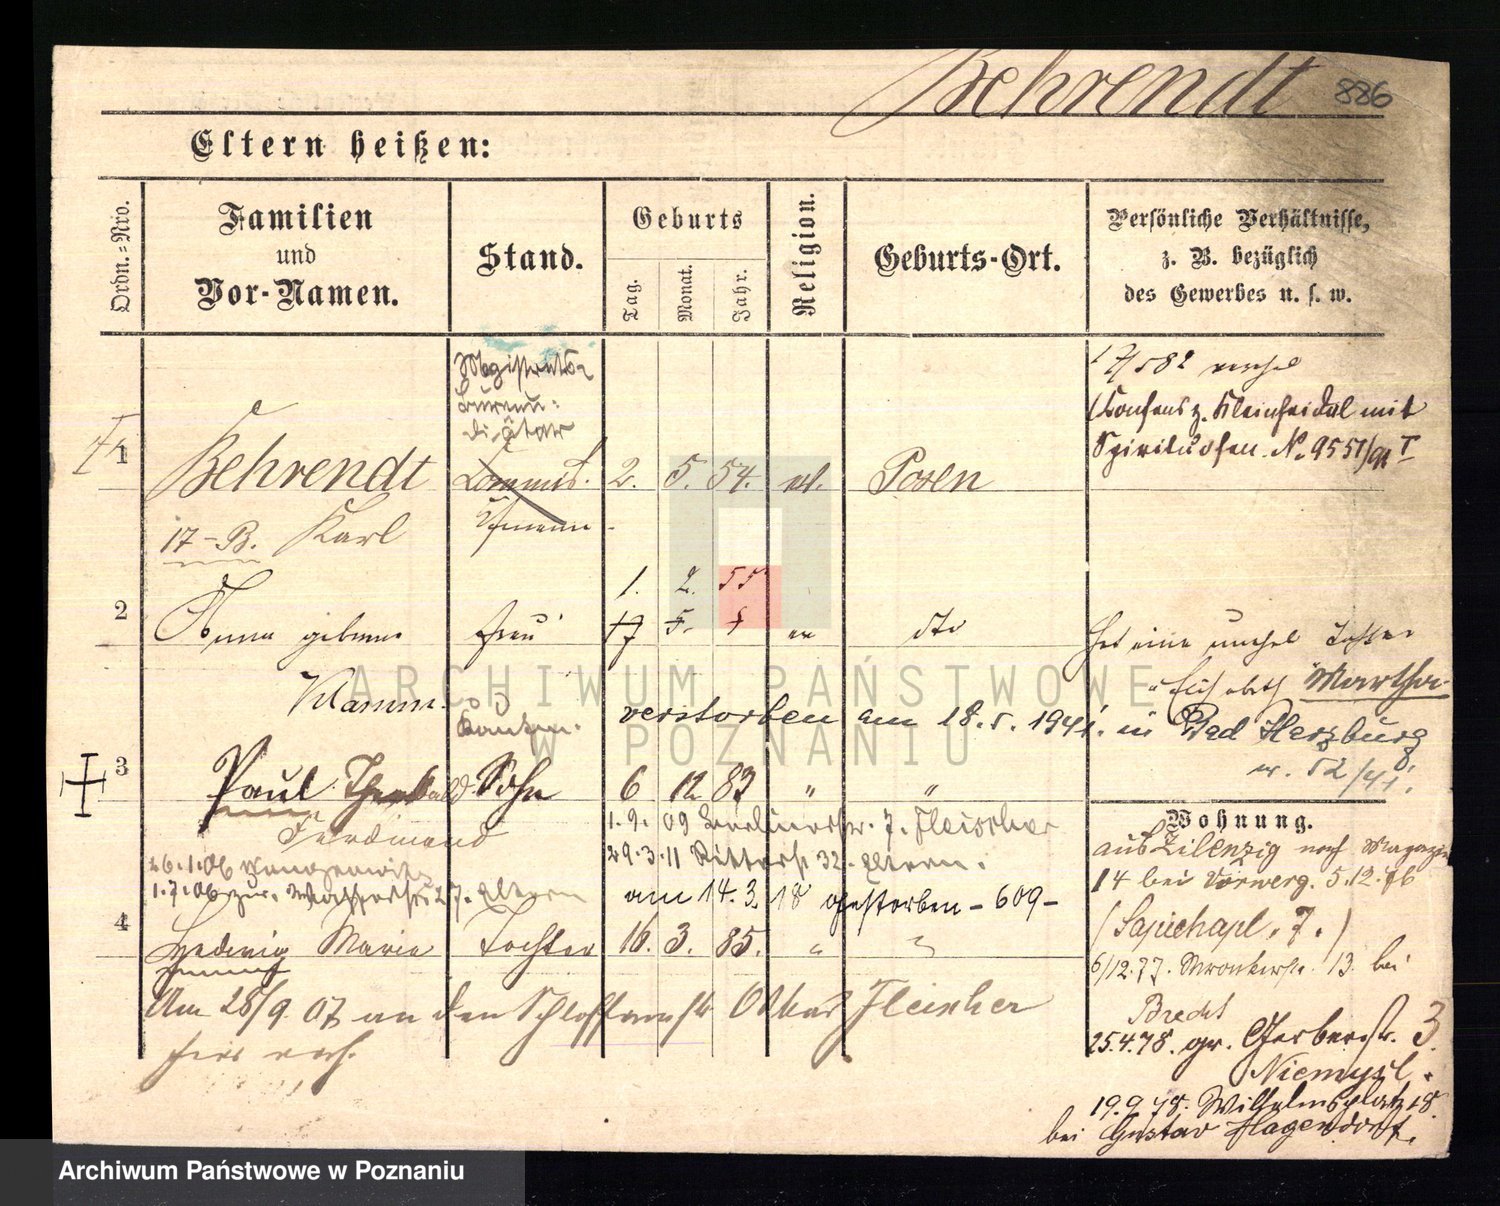 Behrendt 886
Eltern heißen:
Ordn.-Nro.
Familien
und
Vor-Namen.
Stand.
Geburts
Tag.
Monat.
Jahr.
Religion.
Geburts-Ort.
Persönliche Verhältnisse,
z. B. bezüglich
des Gewerbes u. s. w.
Magistrats-
Bureau-
Diätar
1
Behrendt
Commis.
2. 5. 54. ev. Posen
17-B. Karl
Consens z. Kleinhandel mit
Spirituosen. No. 9551/91 I
1. 2. 55
2
Anna geborne Frau 17 5. ev dto
Hat eine unehel Tochter
Elisabeth Martha
Klamm.
verstorben am 18.5.1941. in Bad Harzburg
52/41.
3
Paul Sohn 6 12 83 " "
Ferdinand
1.9.09 7. Fleischer
29.3.11 Ritterstr 32. Eltern.
26.1.06
1.7.06 zur. 27. Eltern
am 14.3.18 gestorben - 609 -
4
Hedwig Marie Tochter 16. 3. 85. " "
Am 28/9. 07 an den Oskar Fleischer
Wohnung.
aus Zilenzig nach Magazin
14 bei Vorwerg. 5.12.76
(Sapiehapl. 7.)
6/12.77. Wronkerstr. 13. bei
Brecht
25.4.78. gr. Gerberstr. 3
19.9.78. Wilhelmsplatz 18.
bei Gustav Hagendorf.
ARCHIWUM PAŃSTWOWE
W POZNANIU
Archiwum Państwowe w Poznaniu